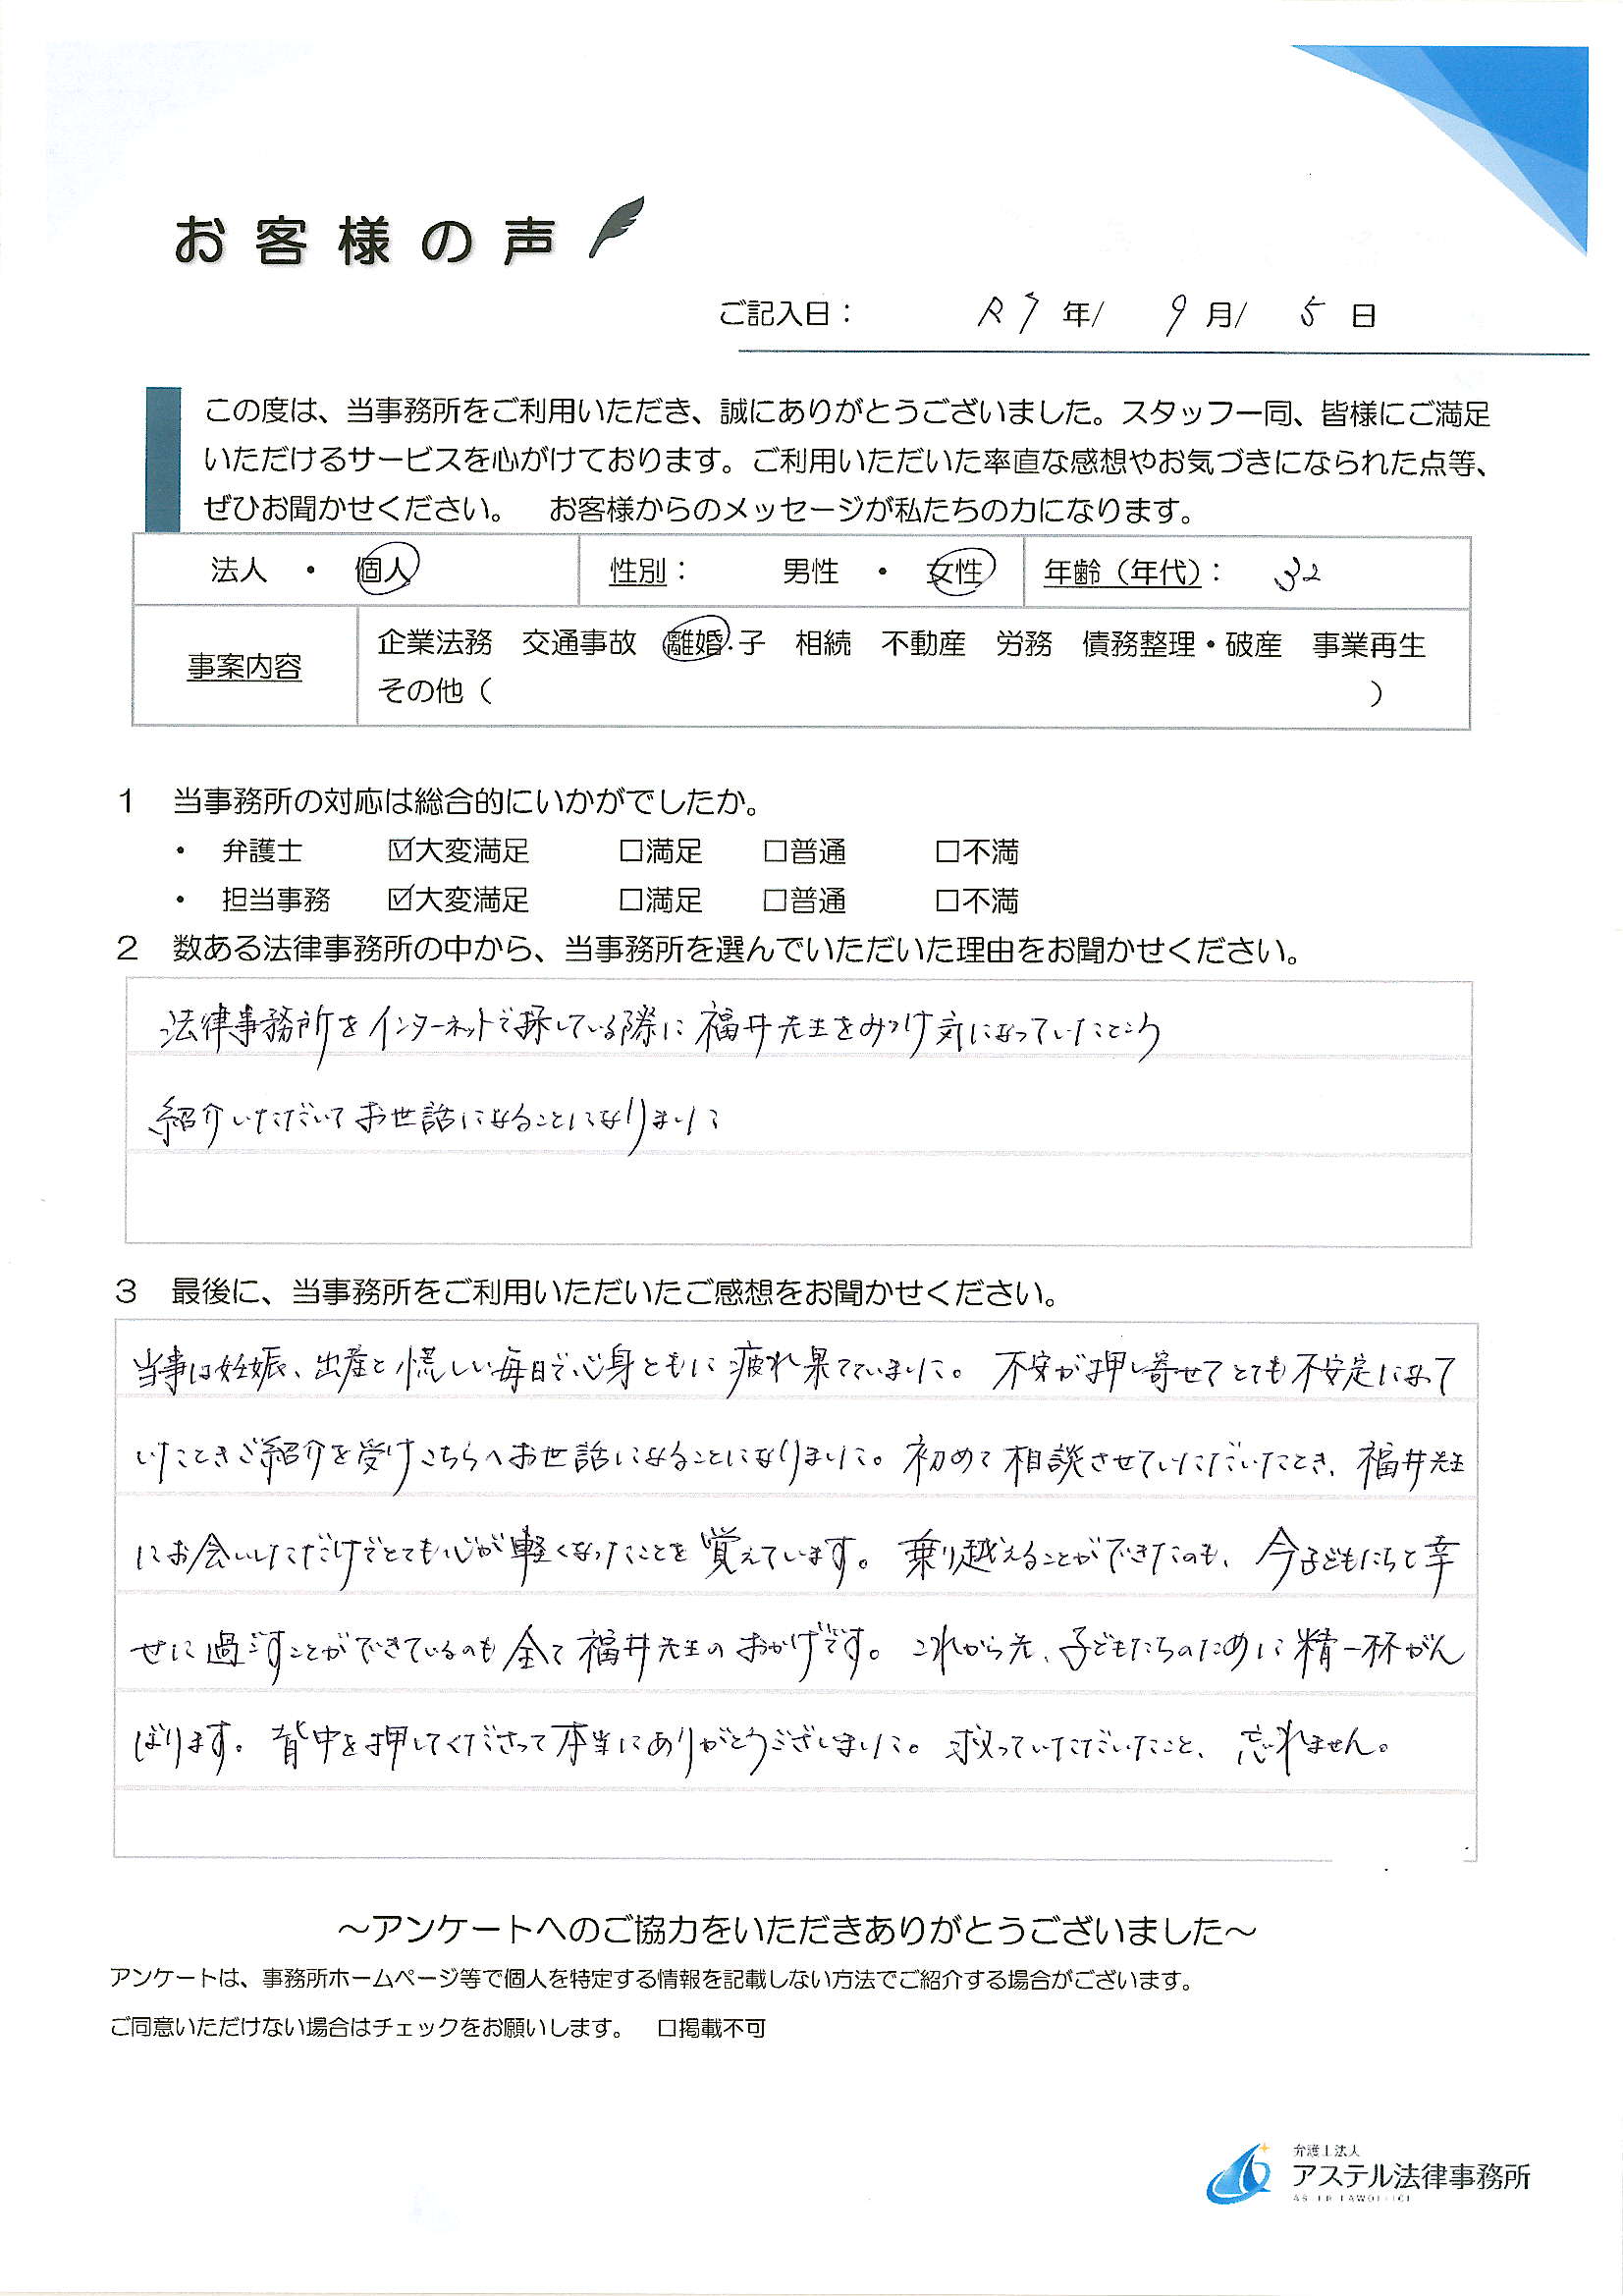 お客様の声
ご記入日： R7年/ 9月/ 5日
この度は、当事務所をご利用いただき、誠にありがとうございました。スタッフ一同、皆様にご満足
いただけるサービスを心がけております。ご利用いただいた率直な感想やお気づきになられた点等、
ぜひお聞かせください。　お客様からのメッセージが私たちの力になります。
法人 ・ 個人　性別： 男性 ・ 女性　年齢（年代）： 32
事案内容
企業法務　交通事故　離婚・子　相続　不動産　労務　債務整理・破産　事業再生
その他（　　　）
1　当事務所の対応は総合的にいかがでしたか。
・　弁護士　☑大変満足　□満足　□普通　□不満
・　担当事務　☑大変満足　□満足　□普通　□不満
2　数ある法律事務所の中から、当事務所を選んでいただいた理由をお聞かせください。
法律事務所をインターネットで探している際に福井先生をみつけ気になっていたところ
紹介いただいてお世話になることになりました
3　最後に、当事務所をご利用いただいたご感想をお聞かせください。
当事は妊娠、出産と慌しい毎日で心身ともに疲れ果てていました。不安が押し寄せてとても不安定になって
いたときご紹介を受けこちらへお世話になることになりました。初めて相談させていただいたとき、福井先生
にお会いしただけでとても心が軽くなったことを覚えています。乗り越えることができたのも、今子どもたちと幸
せに過ごすことができているのも全て福井先生のおかげです。これから先、子どもたちのために精一杯がん
ばります。背中を押してくださって本当にありがとうございました。救っていただいたこと、忘れません。
～アンケートへのご協力をいただきありがとうございました～
アンケートは、事務所ホームページ等で個人を特定する情報を記載しない方法でご紹介する場合がございます。
ご同意いただけない場合はチェックをお願いします。　□掲載不可
弁護士法人
アステル法律事務所